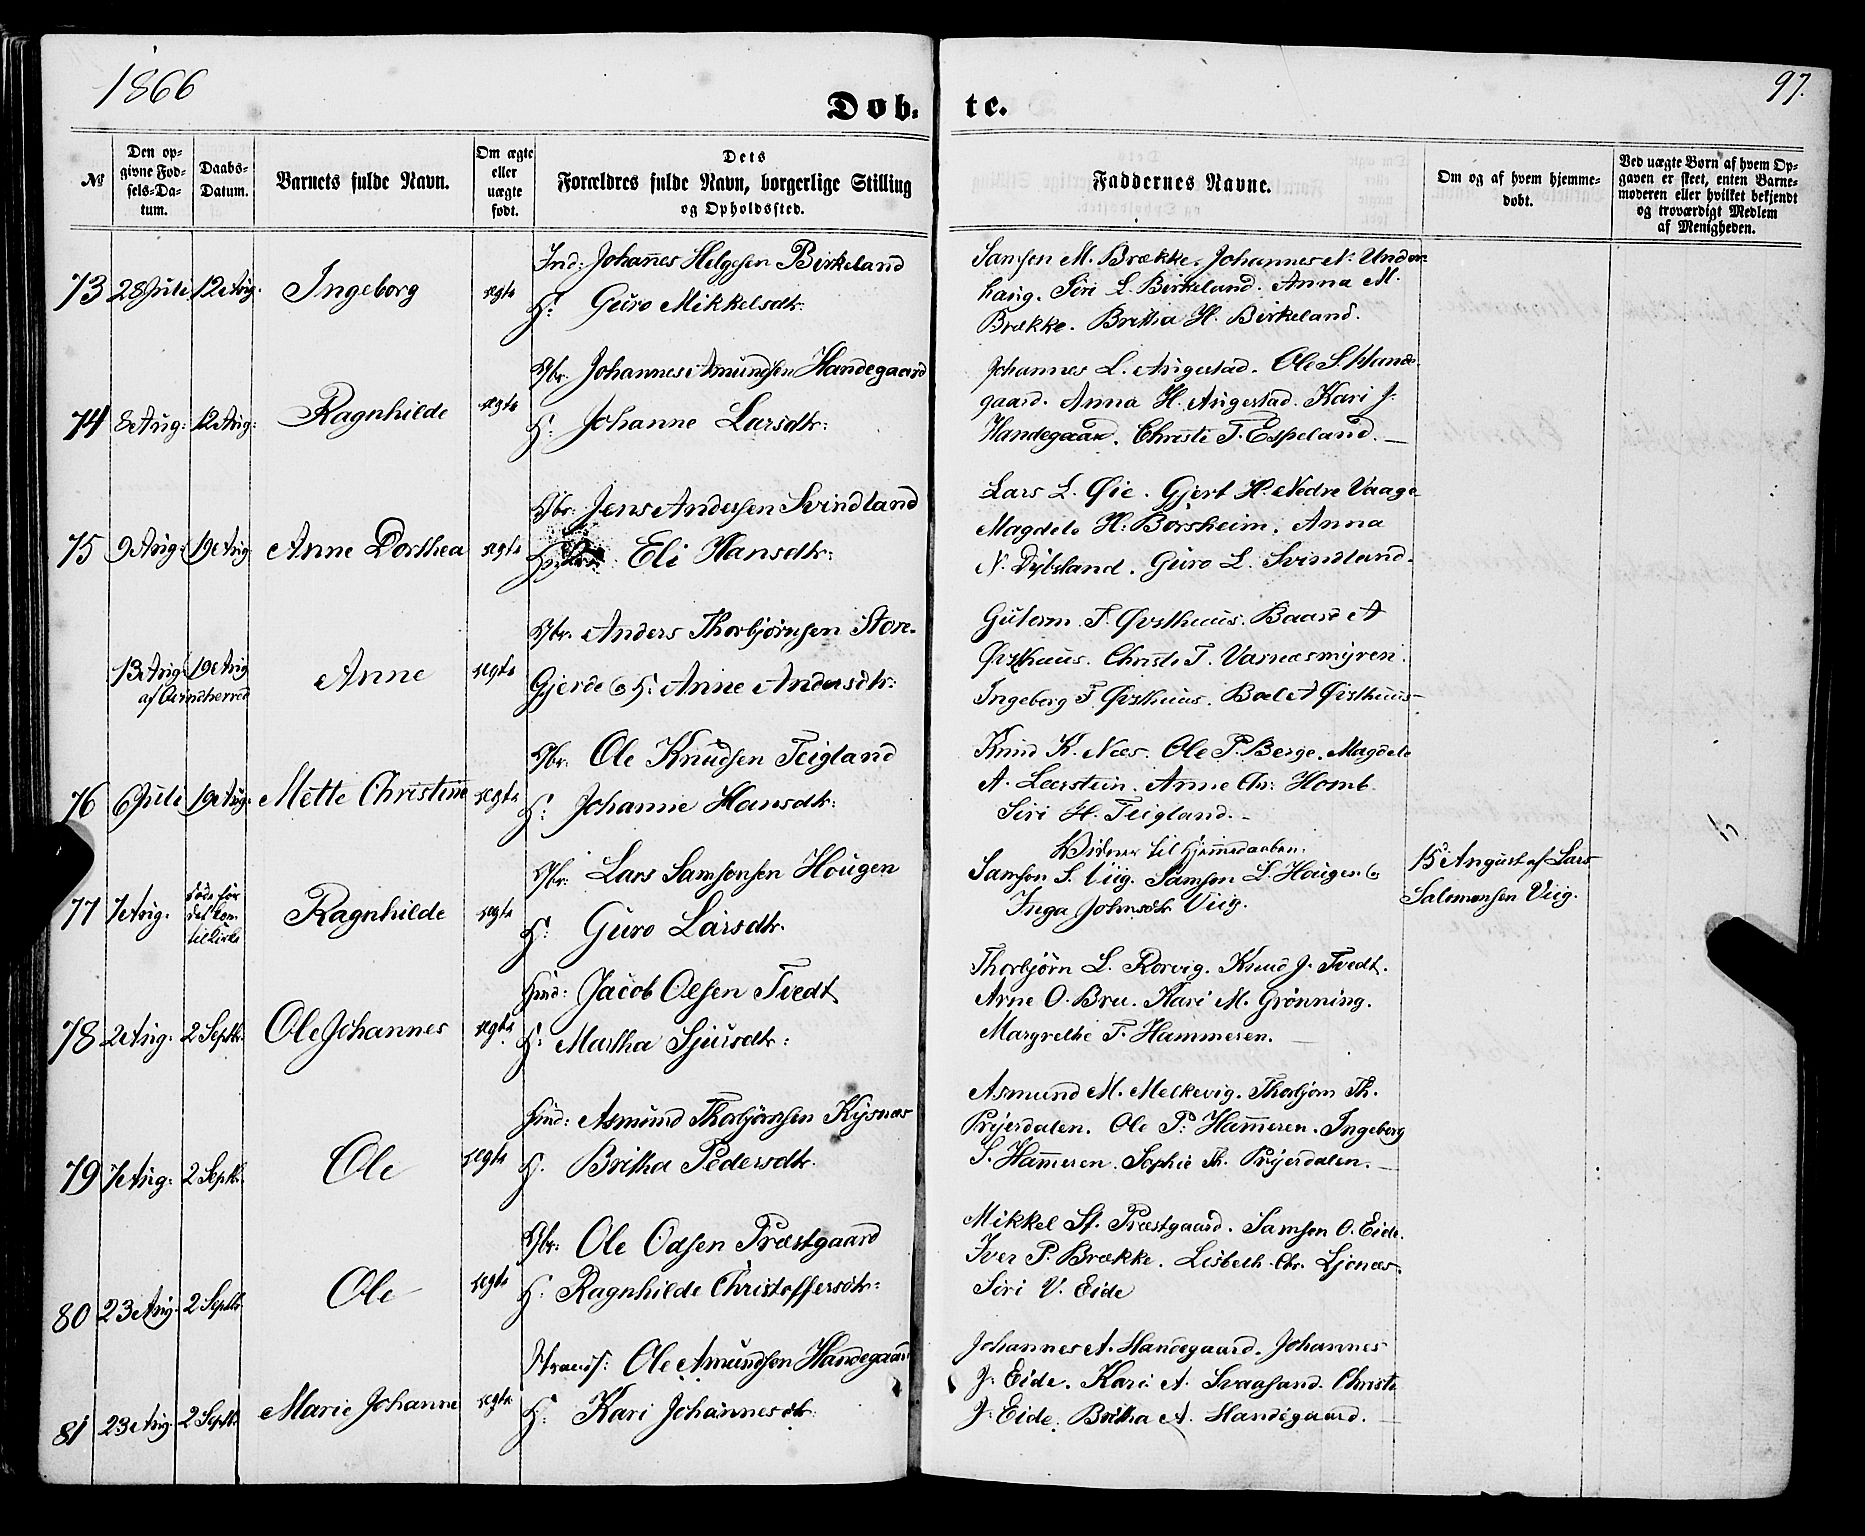 1866
97.
Døb. te.
№
Den opgivne Fødsels-Datum.
Daabs-Datum.
Barnets fulde Navn.
Om ægte eller uægte født.
Dets Forældres fulde Navn, borgerlige Stilling og Opholdssted.
Faddernes Navne.
Om og af hvem hjemmedøbt.
Ved uægte Børn af hvem Opgaven er skeet, enten Barnemoderen eller hvilket bekjendt og troværdigt Medlem af Menigheden.
73 28 Juli 12 Aug. Ingeborg ægte
Ind: Johañes Helgesen Birkeland
H: Guro Mikkelsdtr.
Samsen M. Brække. Johannes N. Under-
haug. Siri L. Birkeland. Anna M.
Brække. Britha H. Birkeland.
74 8 Aug: 12 Aug: Ragnhilde ægte
Gbr. Johannes Amundsen Handegaard
H: Johanne Larsdtr:
Johannes L. Augestad. Ole S. Hande-
gaard. Anna H. Augestad. Kari J.
Handegaar. Christi T. Espeland.
75 9 Aug: 19 Aug. Anne Dorthea ægte
Gbr. Jens Andersen Svindland
Eli Hansdtr:
Lars L. Øie. Gjert H. Nedre Vaage
Magdele H. Börsheim. Anna
N. Dybsland. Guro L. Svindland.
13 Aug: 19 Aug Anne ægte
af Qvindherred
Gbr. Anders Thorbjørnsen Store-
Gjerde & H: Anne Andersdtr:
Guttorm T. Østhuus. Baard A
Østhuus. Christi T. Varnæsmyren.
Ingeborg T Østhuus. Boel A Østhuus
76 6 Juli 19 Aug: Mette Christine ægte
Gbr. Ole Knudsen Teigland
H: Johanne Hansdtr:
Knud K. Næs. Ole P. Berge. Magdele
A. Laastein. Anne Chr: Homb.
Siri H. Teigland.
77 7 Aug. døde før det kom til Kirke Ragnhilde ægte
Gbr: Lars Samsonsen Hougen
H: Guro Larsdtr.
Vidner til Hjemmedaaben.
Samson S. Viig. Samson L. Hougen &
Inga Johnsdtr Viig.
15 August af Lars
Salomonsen Viig.
78 2 Aug. 2 Septbr. Ole Johannes ægte
Huusm: Jacob Olsen Tvedt
H: Martha Sjursdtr:
Thorbjörn L. Rörvig. Knud J. Tvedt.
Arne O. Bru. Kari M. Grönning.
Margrethe T. Hammeren.
79 7 Aug: 2 Septbr. Ole ægte
Huusm: Asmund Thorbjörnsen Kysnæs
H. Britha Pedersdtr.
Asmund M. Melkevig. Thorbjörn Th.
Prijerdalen. Ole P. Hameren. Ingeborg
S. Hameren. Sophie Th. Prijerdalen.
80 23 Aug. 2 Septbr. Ole ægte
Gbr: Ole Odsen Præstgaard
H. Ragnhilde Christoffersdtr:
Mikkel St. Præstgaard. Samson O. Eide.
Iver P. Brække. Lisbeth Chr. Ljonæs.
Siri V. Eide
81 23 Aug. 2 Septbr. Marie Johanne ægte
Strands: Ole Amundsen Handegaard
H: Kari Johannesdtr.
Johannes A. Handegaard. Johannes
J. Eide. Kari A. Svaasand. Christi
J. Eide. Britha A. Handegaard.